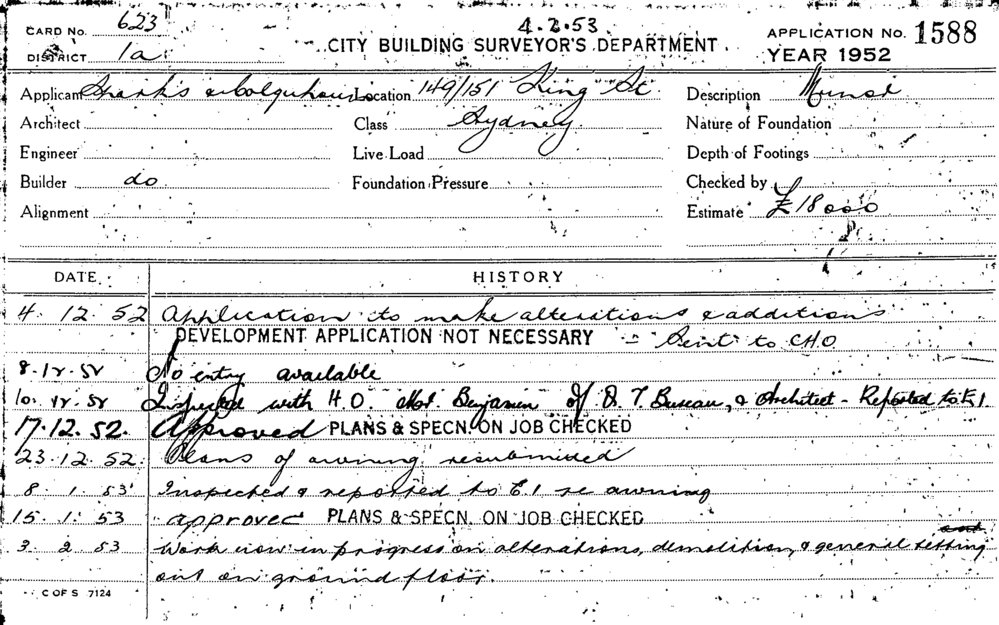 CARD No. 623
4.2.53
DISTRICT 1a
CITY BUILDING SURVEYOR'S DEPARTMENT
APPLICATION No. 1588
YEAR 1952
Applicant Location 149/151 King St Description
Architect Class Sydney Nature of Foundation
Engineer Live Load Depth of Footings
Builder do Foundation Pressure Checked by
Alignment Estimate £18000
DATE HISTORY
4. 12. 52 Application to make alterations & additions
DEVELOPMENT APPLICATION NOT NECESSARY - Sent to CHO
8.12.52 No entry available
10.12.52 Inspected with H.O. Benjamin of & Architect - Reported to E.I.
17.12.52. Approved PLANS & SPECN. ON JOB CHECKED
23.12.52. Plans of awning resubmitted
8. 1. 53 Inspected & reported to E.I re awning
15. 1. 53 approved PLANS & SPECN. ON JOB CHECKED
3. 2. 53 Work now in progress on alterations, demolition, & general setting
out on ground floor.
C OF S 7124